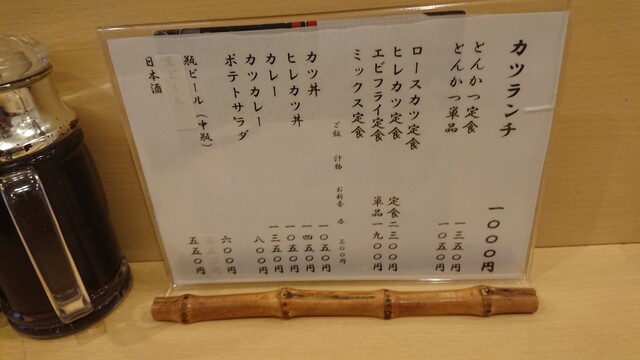 カツランチ 一〇〇〇円
とんかつ定食 一三五〇円
とんかつ単品 一〇五〇円
ロースカツ定食
ヒレカツ定食 定食二三〇〇円
エビフライ定食 単品一九〇〇円
ミックス定食
ご飯 汁物 お新香 各 三〇〇円
カツ丼 一〇五〇円
ヒレカツ丼 一四五〇円
カレー 一〇五〇円
カツカレー 一三五〇円
ポテトサラダ 八〇〇円
瓶ビール(中瓶) 六〇〇円
日本酒 五五〇円